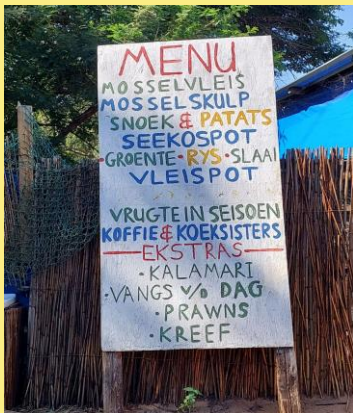 MENU
MOSSELVLEIS
MOSSELSKULP
SNOEK & PATATS
SEEKOSPOT
•GROENTE•RYS•SLAAI
VLEISPOT
VRUGTE IN SEISOEN
KOFFIE & KOEKSISTERS
—EKSTRAS—
•KALAMARI
•VANGS v/d DAG
•PRAWNS
•KREEF